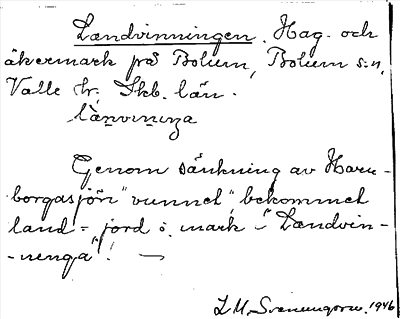 Landvinningen. Hag- och
åkermark på Bolum, Bolum s:n,
Valle hr, Skb. län.
Genom sänkning av Horn-
borgasjön "vunnet", bekommet
land = jord o. mark - "Landvin-
-nenga"! —
L.M. Svenungsson. 1946